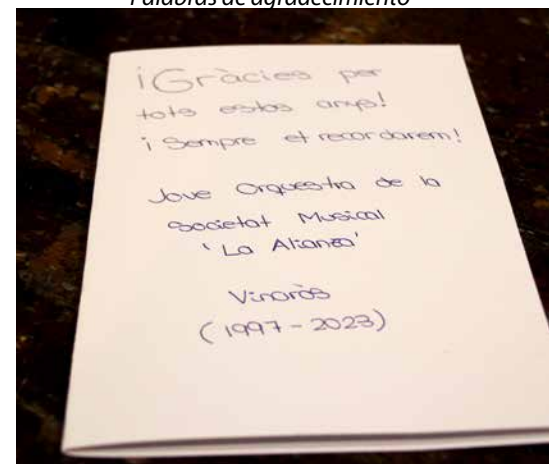 Palabras de agradecimiento
¡Gràcies per
tots estos anys!
¡Sempre et recordarem!
Jove Orquestra de la
Societat Musical
'La Alianza'
Vinaròs
(1997-2023)